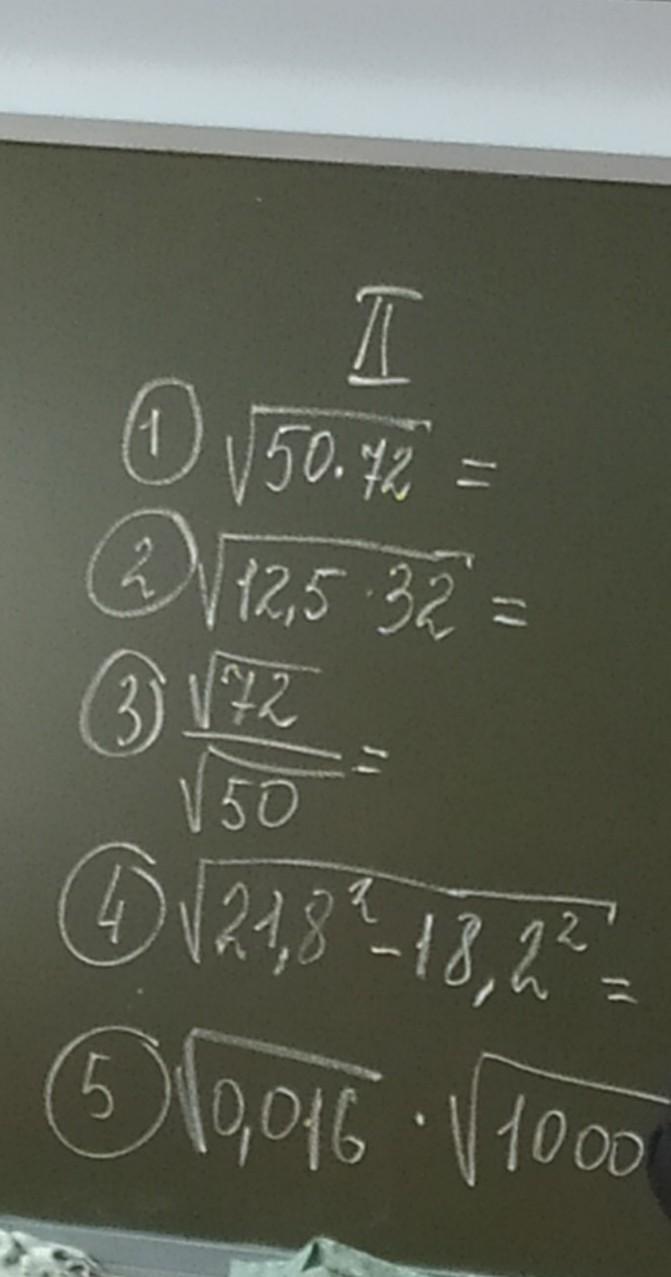 II
① √50·72 =
② √12,5·32 =
③ √72/√50 =
④ √21,8² - 18,2² =
⑤ √0,016 · √1000